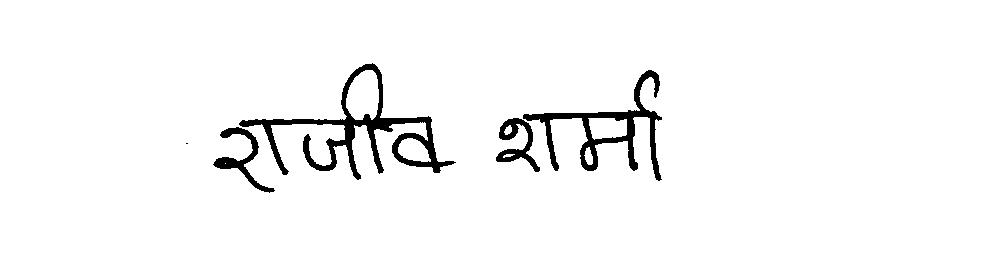 राजीव शर्मा